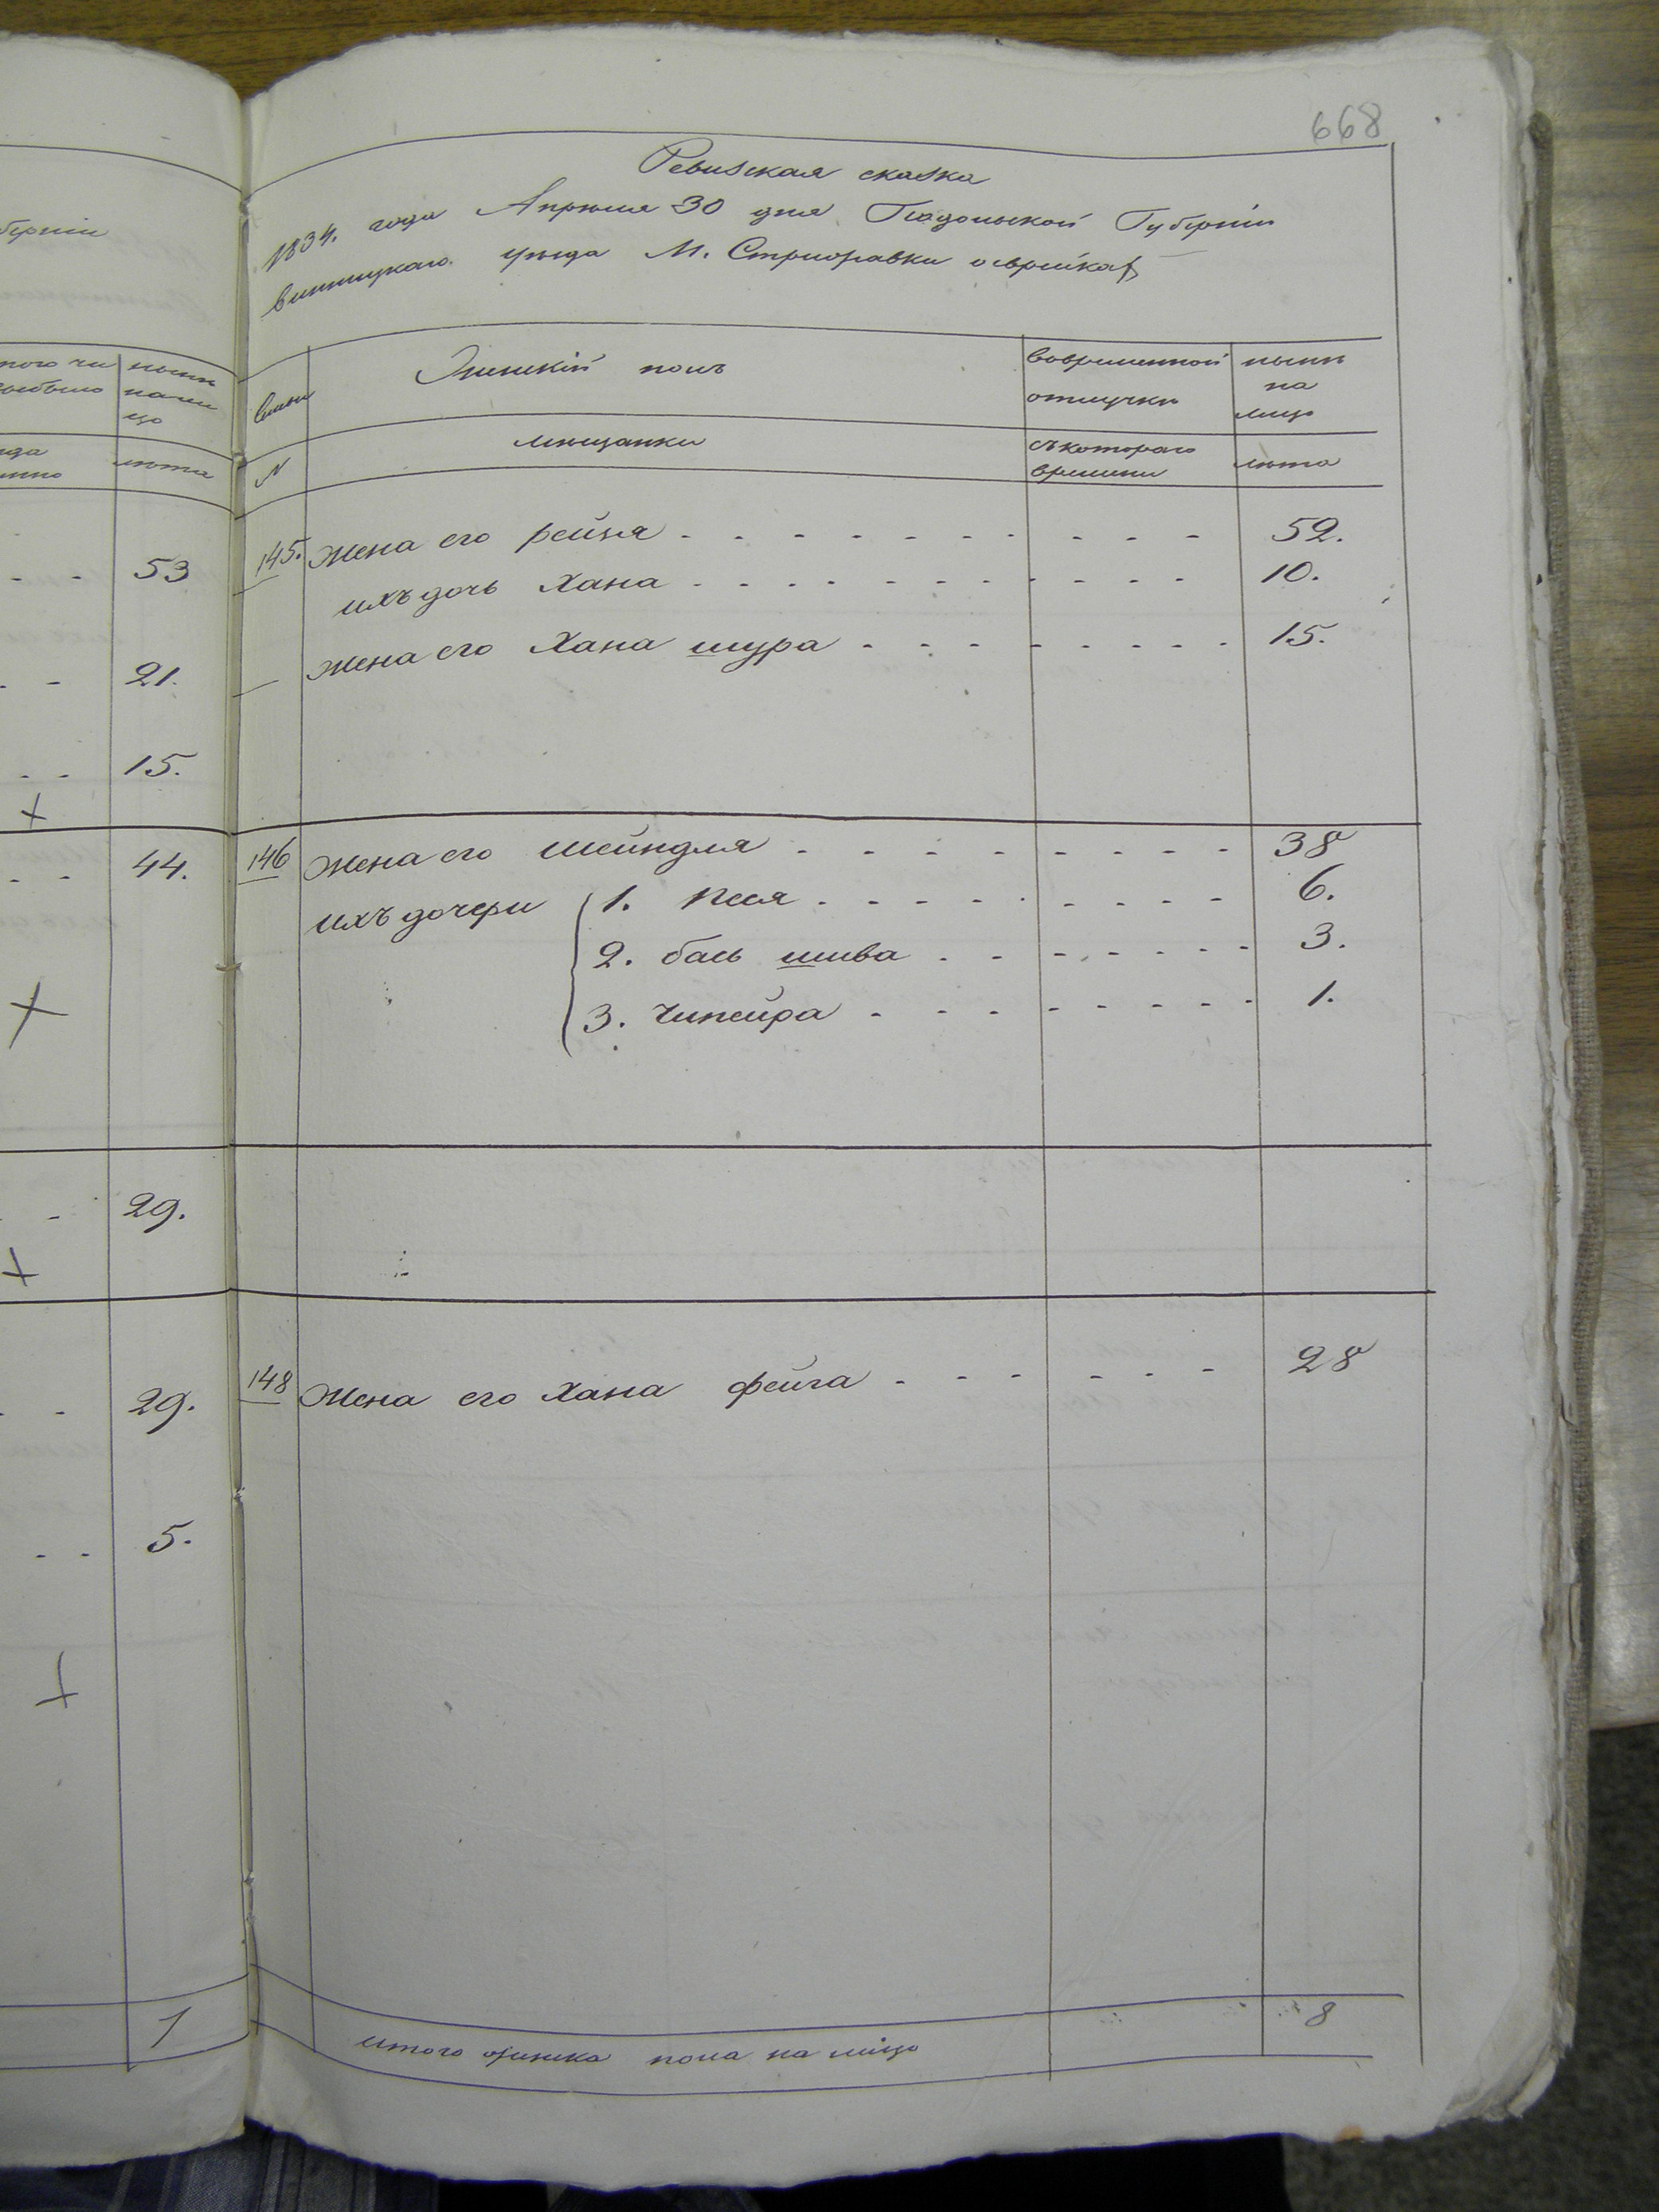 668
Ревизская сказка
1834. года Апреля 30 дня Подольской Губерніи
винницкаго уезда М. Стрижавки оевреяхъ
берніи
того чи
выбыло
ныне
на ли
цо
лета
семьи
Женскій полъ
вовременной
отлучки
ныне
на
лицо
N
мещанки
съкотораго
времени
лета
53
21.
15.
44.
29.
29.
5.
1
145. жена его рейзя - - - - 52.
ихъ дочь Хана - - - - 10.
жена его Хана шура - - - - 15.
146 жена его шейндля - - - - 38
ихъ дочери 1. песя - - - - 6.
2. бась шива - - - - 3.
3. Чипейра - - - - 1.
148 Жена его Хана фейга - - - - 28
итого женска пола на лицо 8